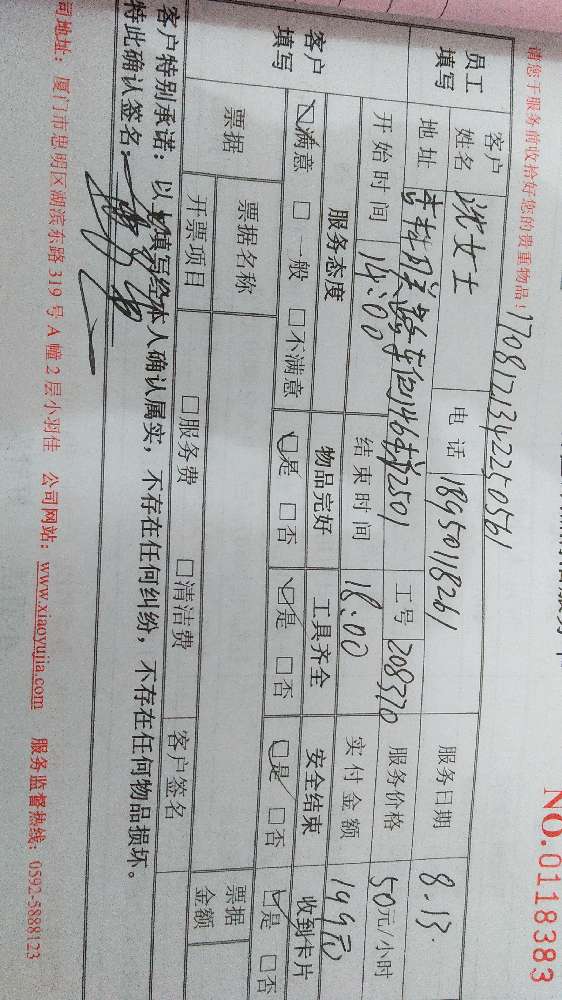 NO.0118383
请您于服务前收拾好您的贵重物品!
1708121342250561
员工填写 客户姓名 沈女士 电话 18950118261 服务日期 8.13.
地址 146号2501 工号 208370 服务价格 50元/小时
开始时间 14:00 结束时间 18:00 实付金额 199元
客户填写 服务态度 物品完好 工具齐全 安全结束 收到卡片
☑满意 □一般 □不满意 ☑是 □否 ☑是 □否 ☑是 □否 ☑是 □否
票据 票据名称 票据金额
开票项目 □服务费 □清洁费 客户签名
客户特别承诺:以上填写经本人确认属实,不存在任何纠纷,不存在任何物品损坏。
特此确认签名:
司地址:厦门市思明区湖滨东路319号A幢2层小羽佳 公司网站:www.xiaoyujia.com 服务监督热线:0592-5888123